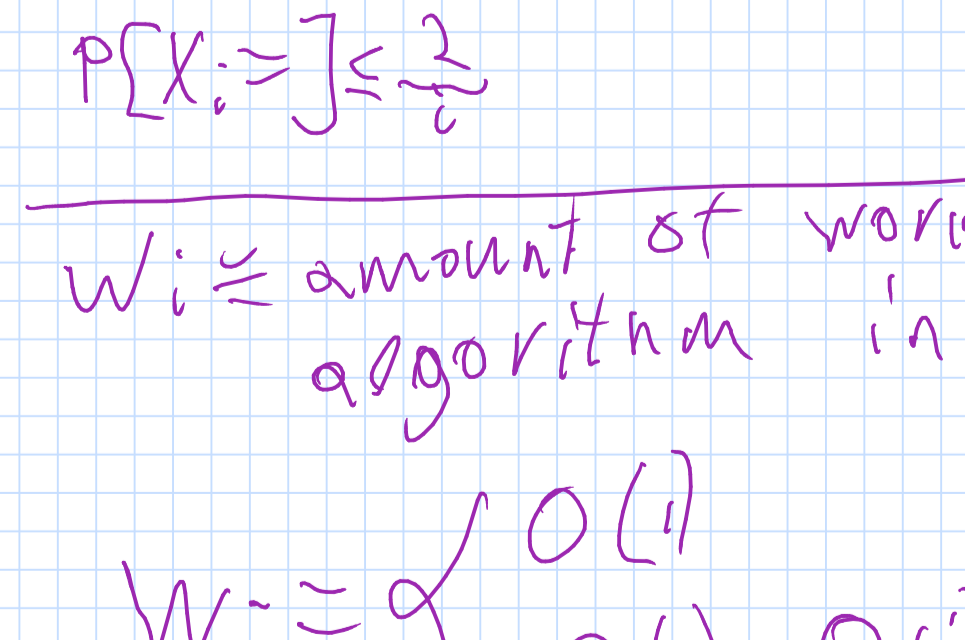 P[X_i = ] ≤ 2/i
W_i ≅ amount of
algorithm in
O(1)
W =